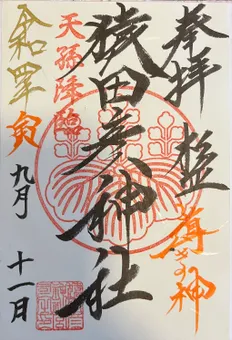 奉拝
導きの神
猿田彦神社
天孫降臨
令和四年寅
九月
十一日